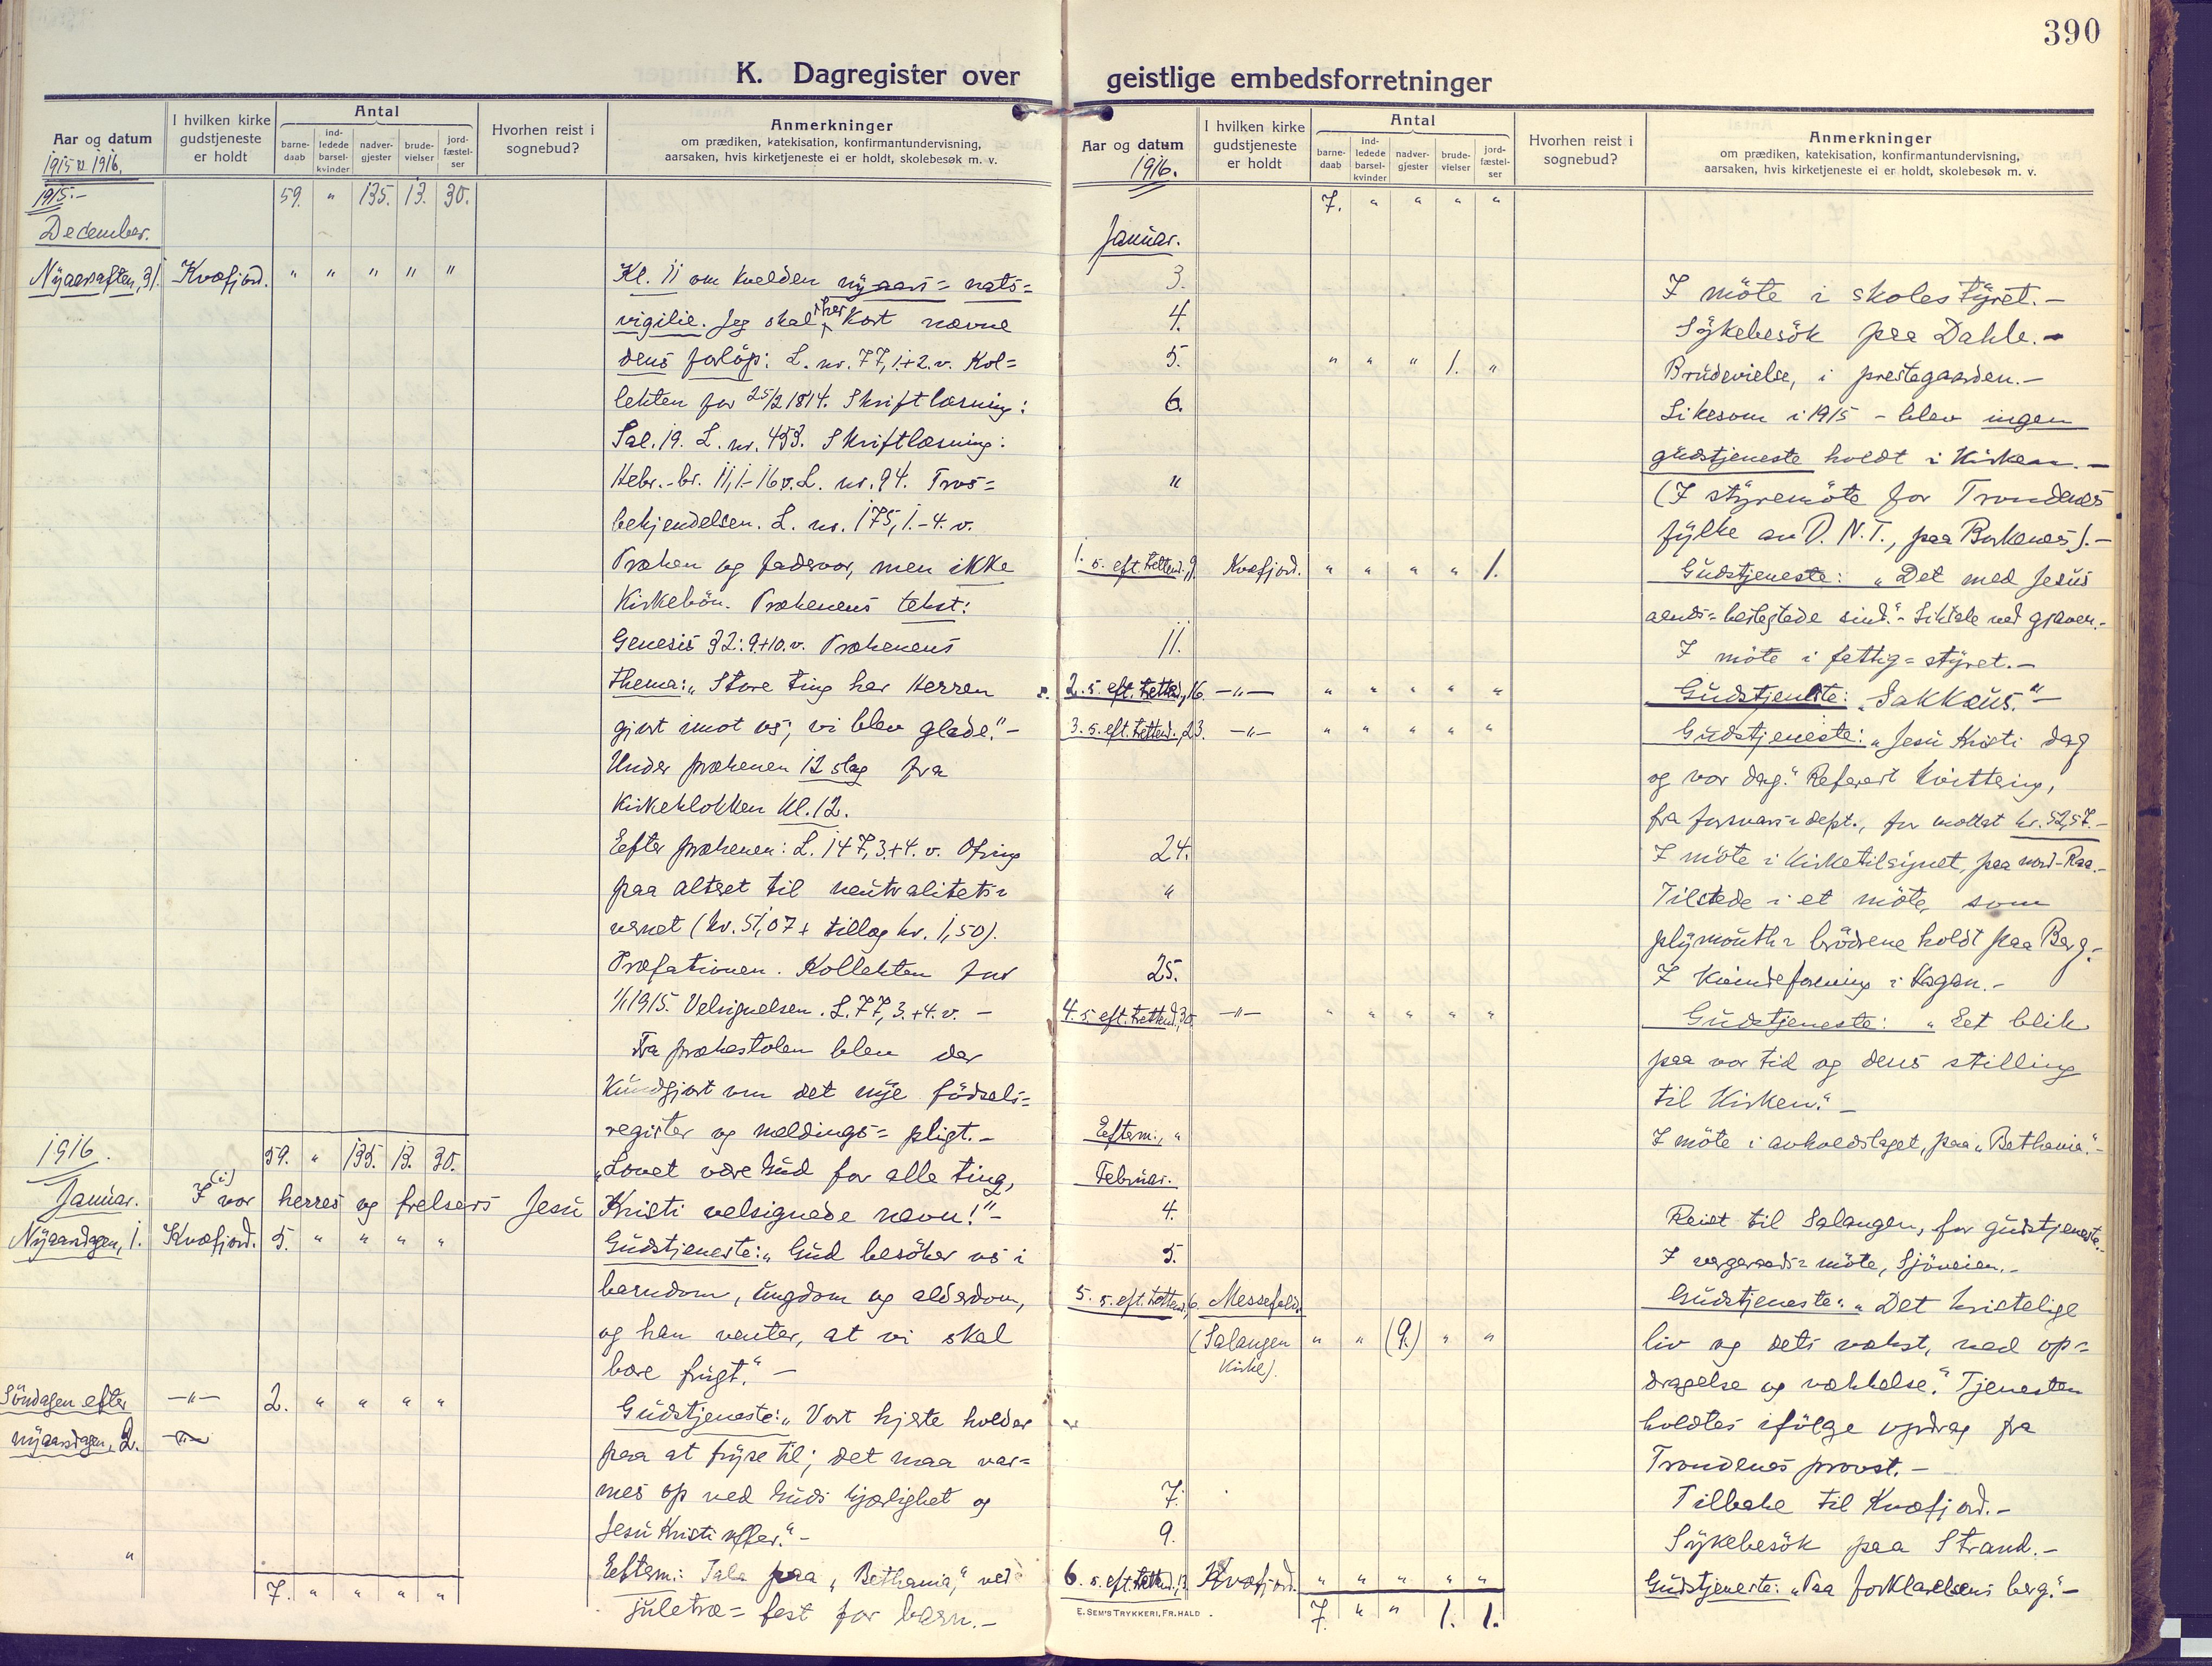 390
K. Dagregister over geistlige embedsforretninger
Aar og datum
1915 & 1916.
I hvilken kirke gudstjeneste er holdt
Antal
barne-daab
ind-ledede barsel-kvinder
nadver-gjester
brude-vielser
jord-fæstel-ser
Hvorhen reist i sognebud?
Anmerkninger
om prædiken, katekisation, konfirmantundervisning,
aarsaken, hvis kirketjeneste ei er holdt, skolebesøk m. v.
1915.- 59. " 135. 13. 30.
December.
Nyaarsaften, 31. Kvæfjord. " " " " " Kl. 11 om kvelden nyaars= nats=
vigilie. Jeg skal her kort nævne
dens forlöp: L. nr. 77, 1.+2. v. Kol=
lekten for 25/2 1814. Skriftlæsning:
Sal. 19. L. nr. 453. Skriftlæsning:
Hebr.-br. 11, 1-16 v. L. nr. 94. Tros=
bekjendelsen. L. nr. 175, 1.-4. v.
Præken og fadervor, men ikke
Kirkebön. Prækenens tekst:
Genesis 32: 9.+10. v. Prækenens
thema: „Store ting har Herren
gjort imot os; vi blev glade." -
Under prækenen 12 slag fra
Kirkeklokken kl. 12.
Efter prækenen: L. 147, 3.+4. v. Ofring
paa altret til neutralitets=
vernet (kr. 51,07 + tillæg kr. 1,50).
Præfationen. Kollekten for
1/1 1915. Velsignelsen. L. 77, 3.+4. v. -
Fra prækestolen blev der
Kundgjort om det nye födsels=
register og meldings= pligt. -
1916. 59. " 135. 13. 30. „Lovet være Gud for alle ting,
Januar. I (i) vor herres og frelsers Jesu Kristi velsignede navn!" -
Nyaarsdagen, 1. Kvæfjord. 5. " " " " Gudstjeneste: „Gud besöker os i
barndom, ungdom og alderdom,
og han venter, at vi skal
bære frugt." -
Söndagen efter -"- 2. " " " " Gudstjeneste: „Vort hjerte holder
nyaarsdagen, 2. paa at fryse til; det maa var=
mes op ved Guds kjærlighet og
Jesu Kristi offer." -
" Eftem.: Tale paa „Bethania," ved
7. " " " " juletræ= fest for barn. -
Aar og datum
1916.
I hvilken kirke gudstjeneste er holdt
Antal
barne-daab
ind-ledede barsel-kvinder
nadver-gjester
brude-vielser
jord-fæstel-ser
Hvorhen reist i sognebud?
Anmerkninger
om prædiken, katekisation, konfirmantundervisning,
aarsaken, hvis kirketjeneste ei er holdt, skolebesøk m. v.
7. " " " "
Januar.
3. I möte i skolestyret. -
4. Sykebesök paa Dahle. -
5. " " " 1. " Brudevielse, i prestegaarden. -
6. Likesom i 1915 - blev ingen
gudstjeneste holdt i Kirken. -
" (I styremöte for Trondenes
fylke av D. N. T., paa Borkenes). -
1. s. eft. trettend., 9. Kvæfjord. " " " " 1. Gudstjeneste: „Det med Jesus
aands= beslegtede sind." - Liktale ved graven. -
11. I möte i fattig= styret. -
2. s. eft. trettend., 16. -"- " " " " " Gudstjeneste: „Sakkæus." -
3. s. eft. trettend., 23. -"- " " " " " Gudstjeneste: „Jesu Kristi dag
og vor dag." Referert kvittering,
fra forsvars= dept., for mottat kr. 52,57. -
24. I möte i Kirketilsynet, paa nord-Raa. -
" Tilstede i et möte, som
plymouth= brödrene holdt paa Berg. -
25. I Kvindeforening i Hagan. -
4. s. eft. trettend., 30. -"- " " " " " Gudstjeneste: „Eet blik
paa vor tid og dens stilling
til Kirken." -
Eftem., " I möte i avholdslaget, paa „Bethania." -
Februar.
4. Reist til Salangen, for gudstjeneste. -
5. I vergeraads= möte, Sjöveien. -
5. s. eft. trettend., 6. Messefald. Gudstjeneste: „Det kristelige
(Salangen Kirke). " " (9.) " " liv og dets vækst, ved op=
dragelse og vækkelse." Tjenesten
holdtes ifölge opdrag fra
Trondenes provst. -
7. Tilbake til Kvæfjord. -
9. Sykebesök paa Strand. -
6. s. eft. trettend., 13. Kvæfjord. " " " " " Gudstjeneste: „Paa forklarelsens berg." -
7. " " 1. 1.
E. SEM'S TRYKKERI, FR. HALD